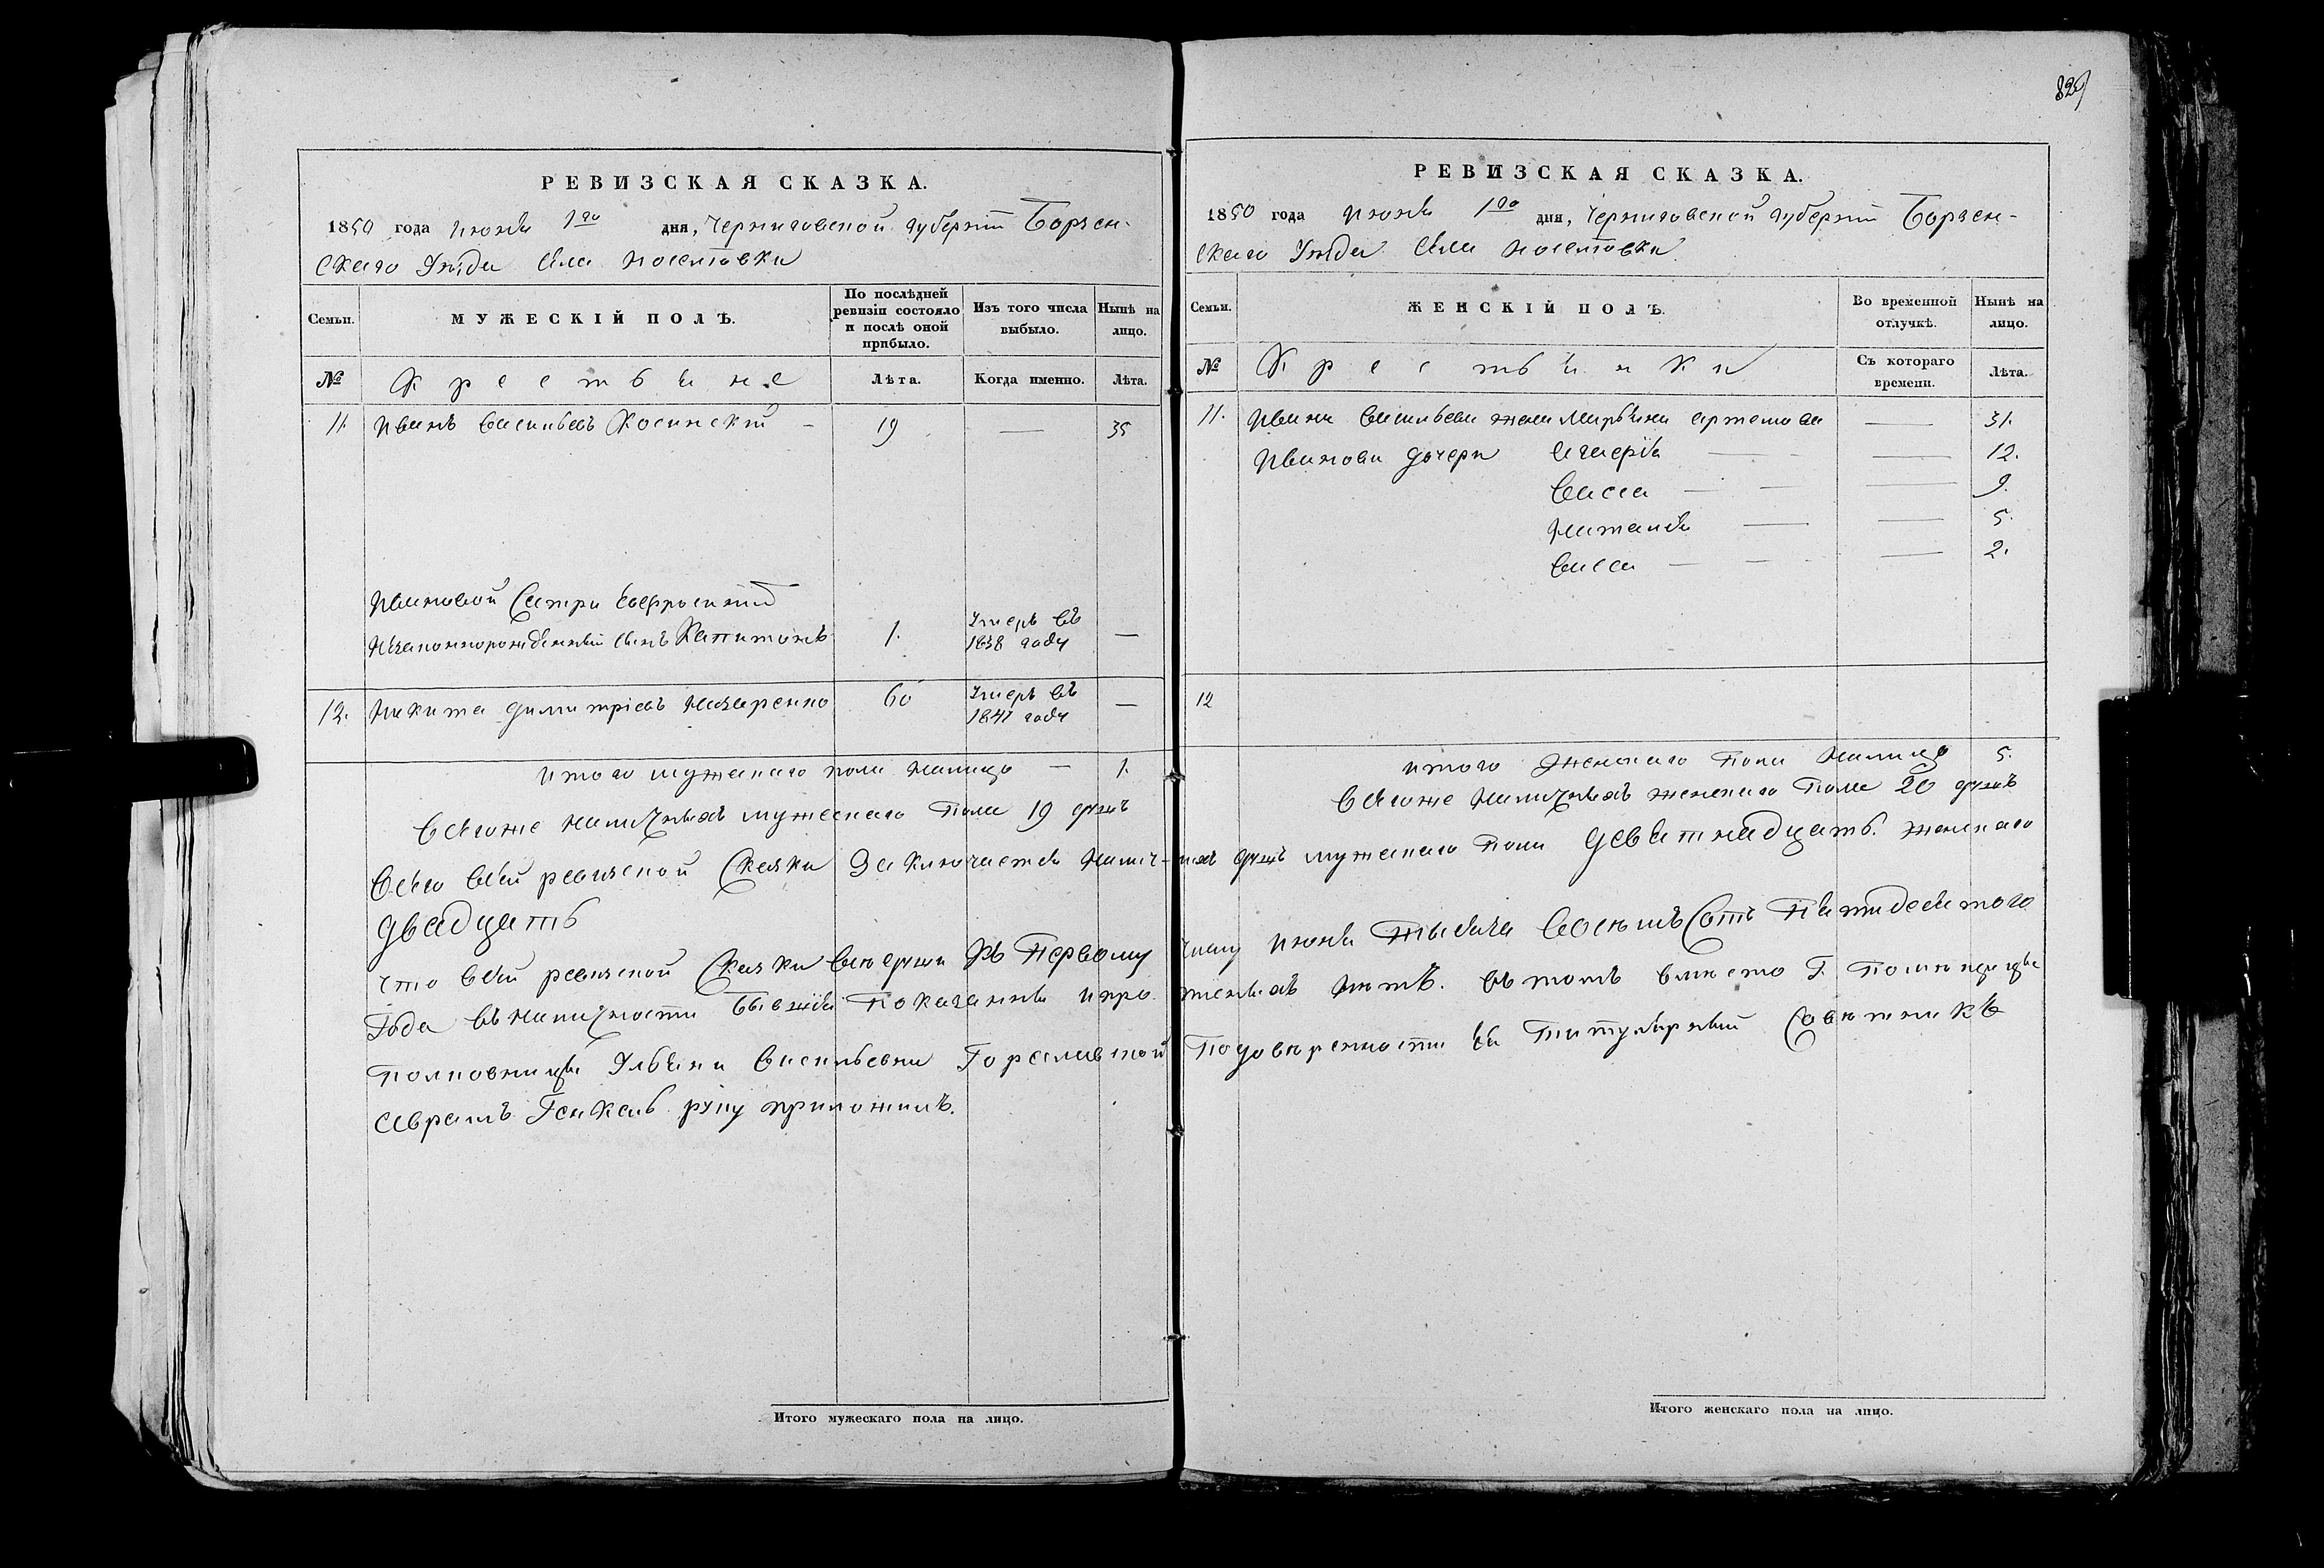 829
РЕВИЗСКАЯ СКАЗКА.
1850 года июня 1го дня, Черниговской губерніи Борзен-
скаго Уѣзда Села
Семьи.
МУЖЕСКІЙ ПОЛЪ.
По послѣдней ревизіи состояло и послѣ оной прибыло.
Изъ того числа выбыло.
Нынѣ на лицо.
№
Крестьяне
Лѣта.
Когда именно.
Лѣта.
11. Иванъ Васильевъ Косинскій 19 — 35
Ивановой Сестры Ефросиніи
Незаконнорожденный сынъ Капитонъ 1. Умеръ въ 1838 году —
12. Никита Димитріевъ Назаренко 60 Умеръ въ 1841 году —
Итого мужескаго пола налицо — 1.
Всѣхже наличныхъ мужескаго пола 19 душъ
РЕВИЗСКАЯ СКАЗКА.
1850 года июня 1го дня, Черниговской губерніи Борзен-
скаго Уѣзда Села
Семьи.
ЖЕНСКІЙ ПОЛЪ.
Во временной отлучкѣ.
Нынѣ на лицо.
№
Крестьянки
Съ котораго времени.
Лѣта.
11. Ивана Васильева жена Марьяна Артемова — 31.
Ивановы дочери — 12.
Васса — — 9.
Наталья — — 5.
Васса — — 2.
12
Итого женскаго пола налицо 5.
Всѣхже наличныхъ женскаго пола 20 душъ
Всего всей ревизской Сказки Заключается налич-ныхъ душъ мужескаго пола девятнадцать. женскаго
двадцать
что всей ревизской Сказки всѣ души Къ Первому числу июня тысяча восемъ Сотъ Пятидесятаго
Года въ наличности бывшія показанны и про женныхъ нѣтъ. въ томъ вмѣсто Г. помѣщицы
полковницы Ульяны Васильевны подовѣренности ея Титулярный Совѣтникъ
Аврамъ руку приложилъ.
Итого мужескаго пола на лицо.
Итого женскаго пола на лицо.